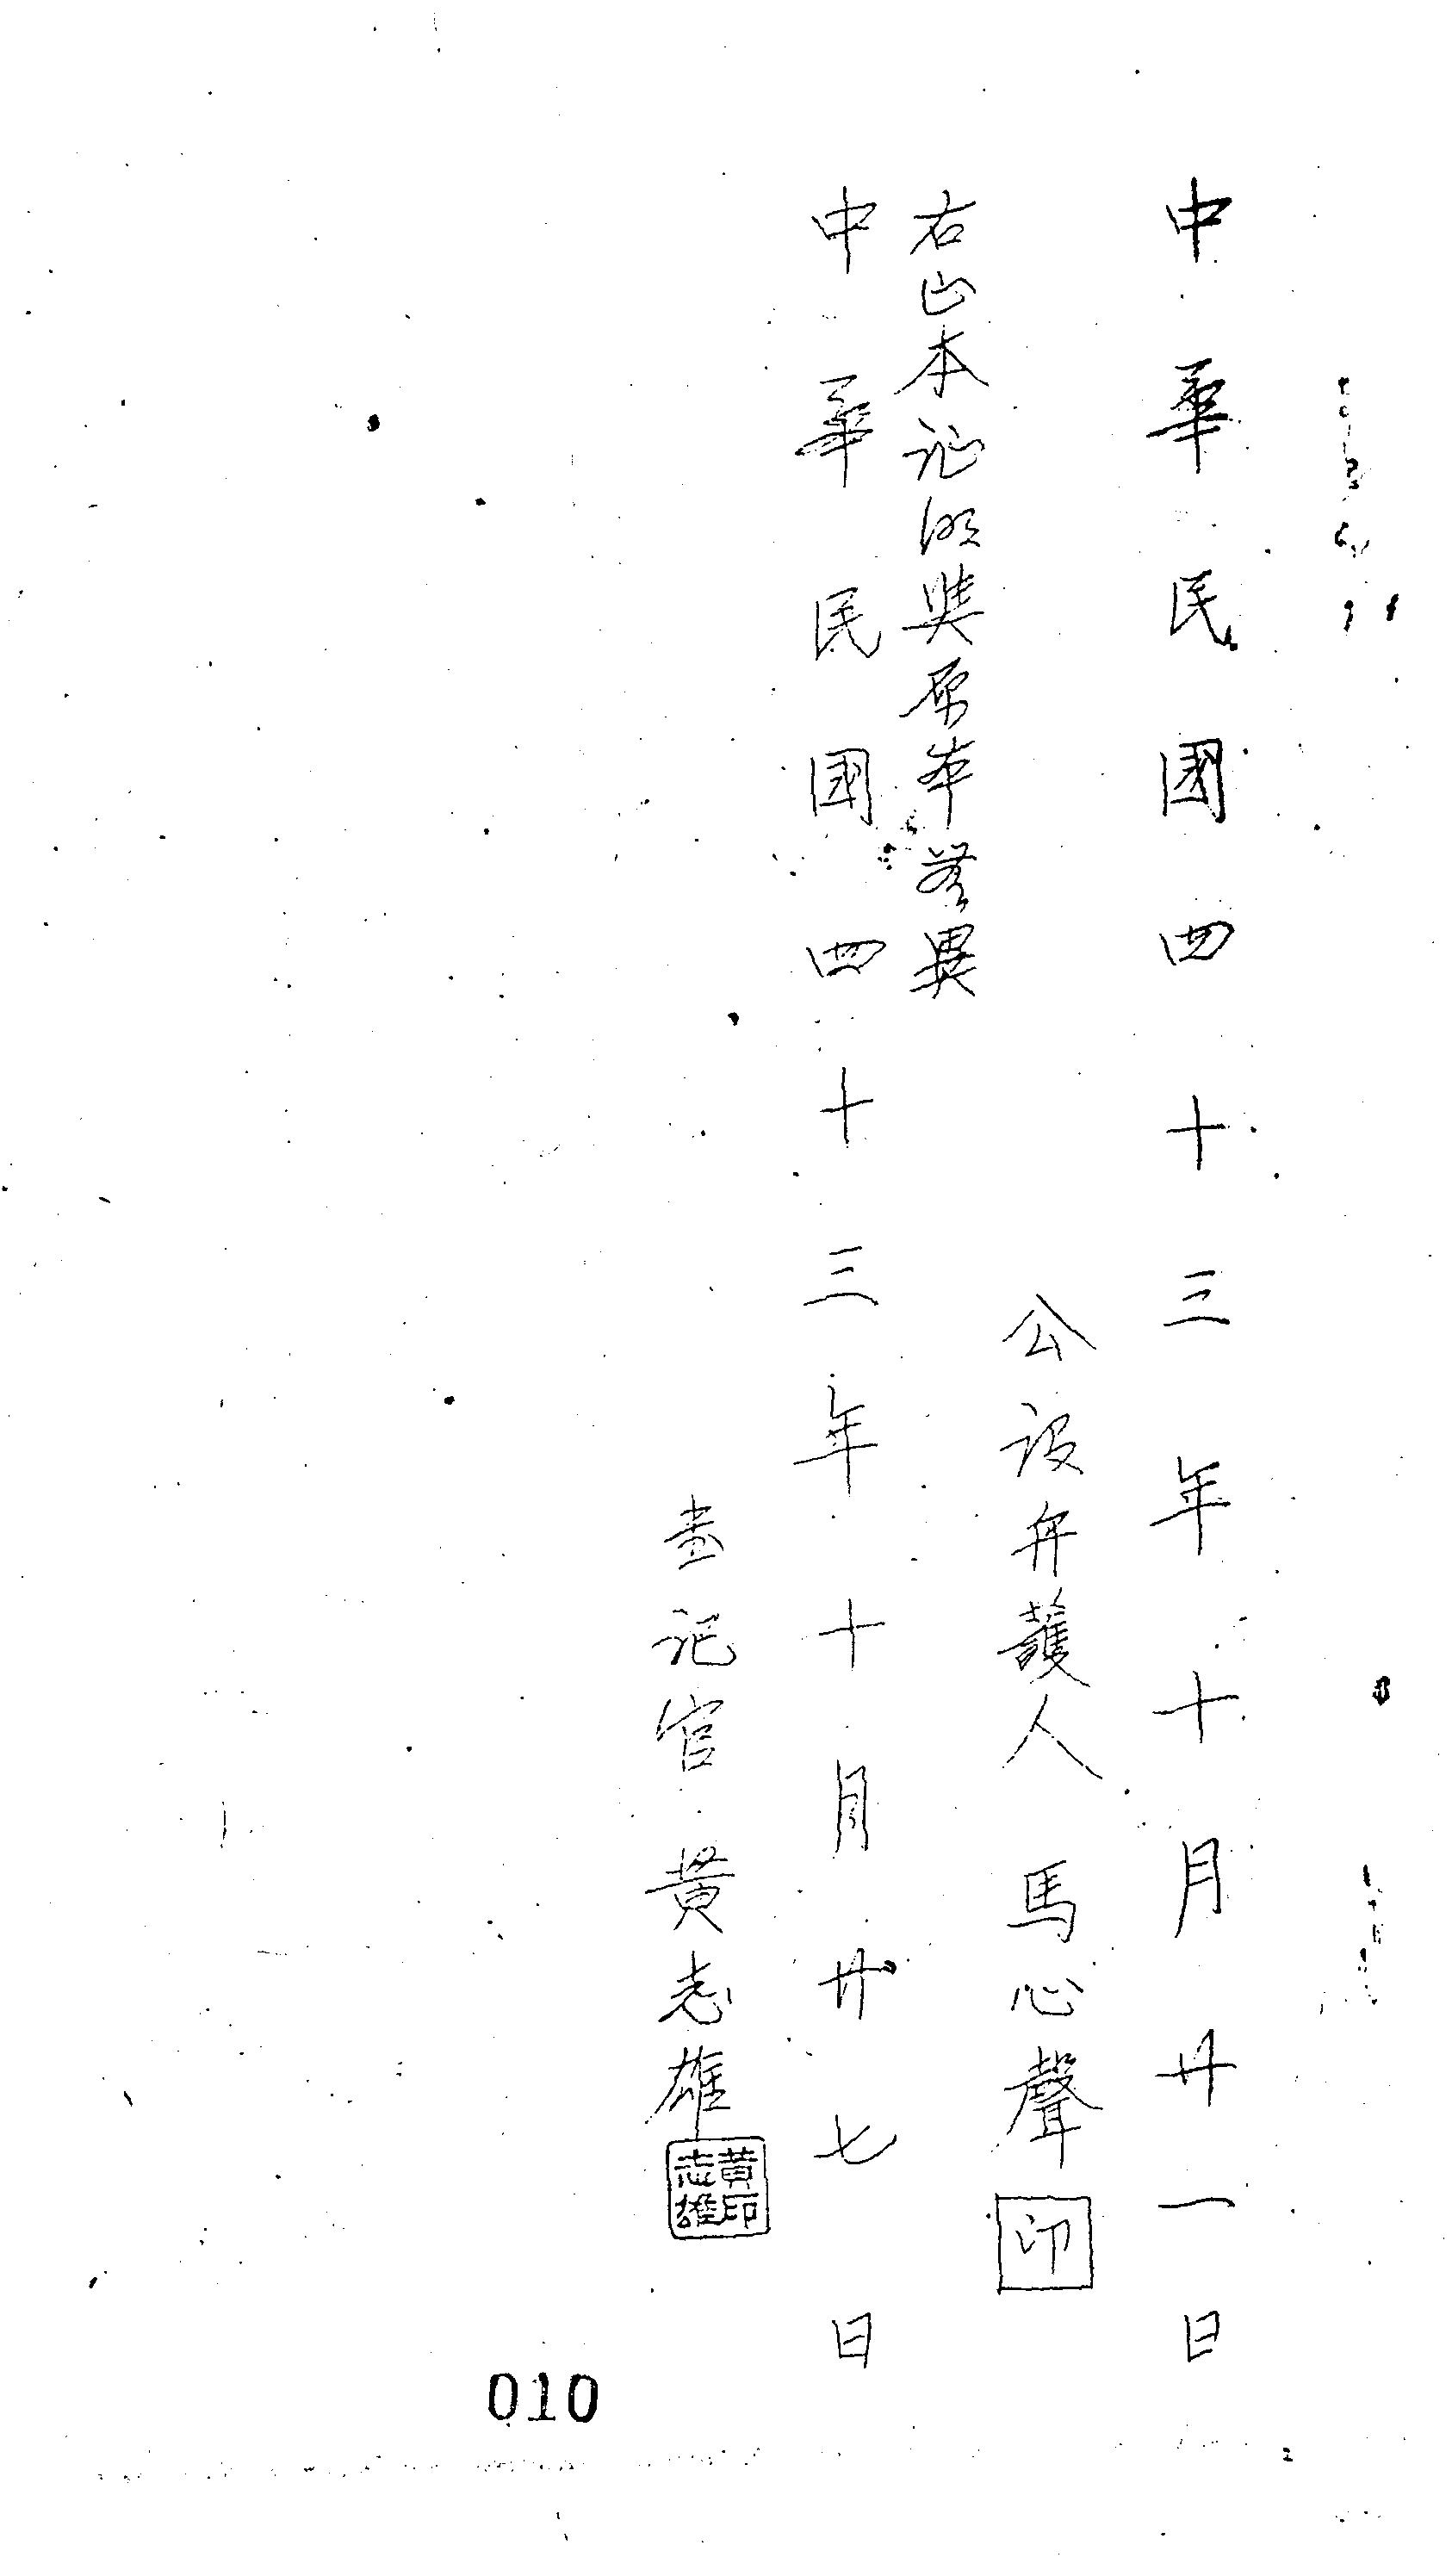 中華民國四十三年十月廿一日
公設弁護人 馬心聲 印
右正本证明與原本無異
中華民國四十三年十月廿七日
書記官 黃志雄
黃印志雄
010